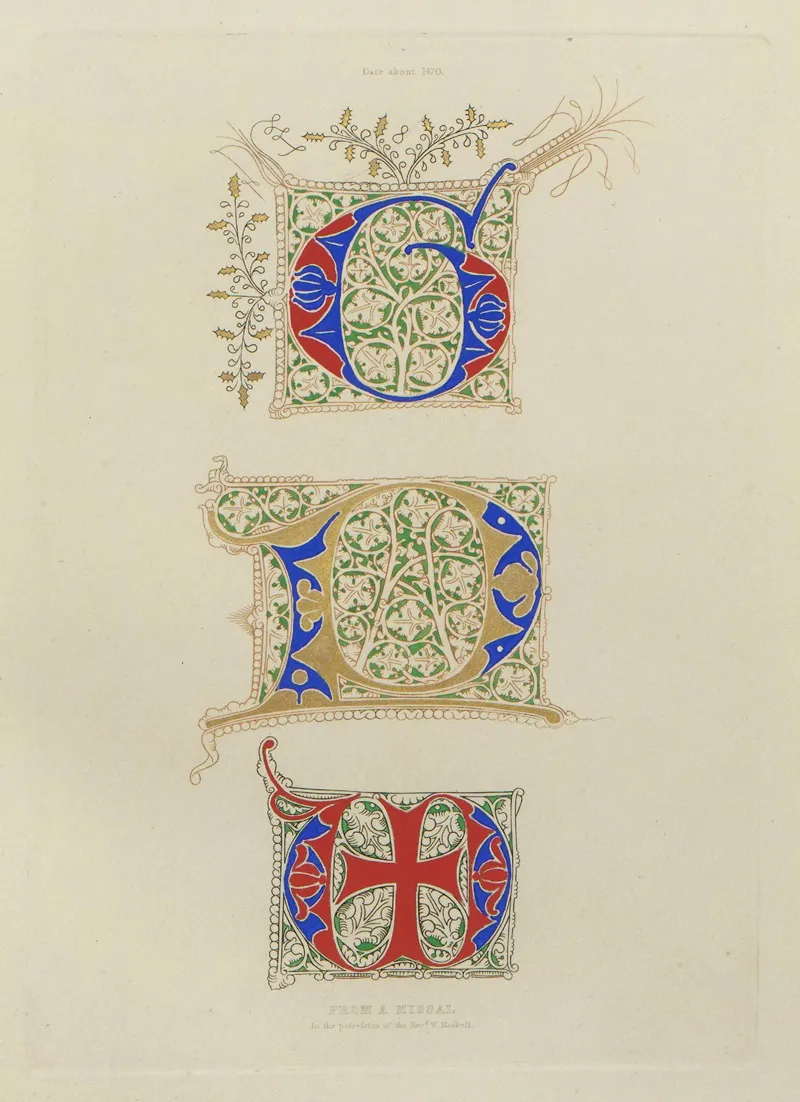 Date about 1470.
G
D
FROM A MISSAL
In the poſseſsion of the Rev.ᵈ W. Maskell.